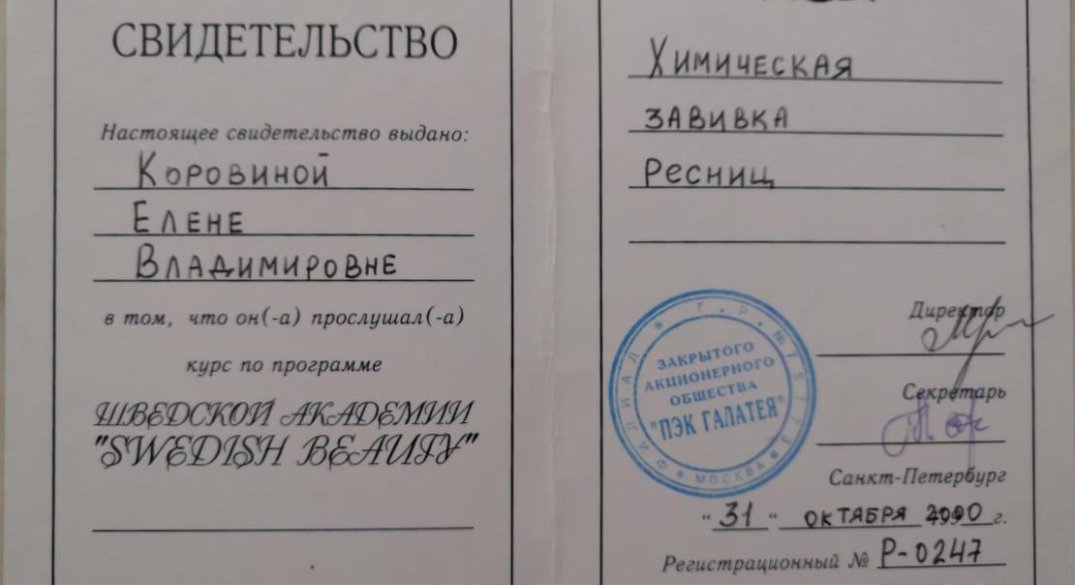 СВИДЕТЕЛЬСТВО
Настоящее свидетельство выдано:
Коровиной
Елене
Владимировне
в том, что он(-а) прослушал(-а)
курс по программе
ШВЕДСКОЙ АКАДЕМИИ
"SWEDISH BEAUTY"
Химическая
завивка
Ресниц
Директор
Секретарь
ФИЛИАЛ * Г.Р.№
ЗАКРЫТОГО
АКЦИОНЕРНОГО
ОБЩЕСТВА
"ПЭК ГАЛАТЕЯ"
МОСКВА
Санкт-Петербург
"31" октября г.
Регистрационный № Р-0247